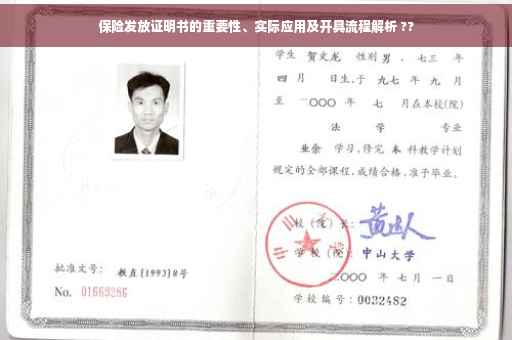 保险发放证明书的重要性、实际应用及开具流程解析 ??
学生 贺文龙 性别 男 、七三 年
四 月 日生,于 九七 年 九 月
至 二〇〇〇 年 七 月在本校(院)
法 学 专业
业余 学习,修完 本 科教学计划
规定的全部课程,成绩合格,准予毕业。
校(院)长:
学校(院): 中山大学
批准文号: 教直[1993]8号
二〇〇〇 年 七 月 一 日
No. 01663286
学校编号: 0032482